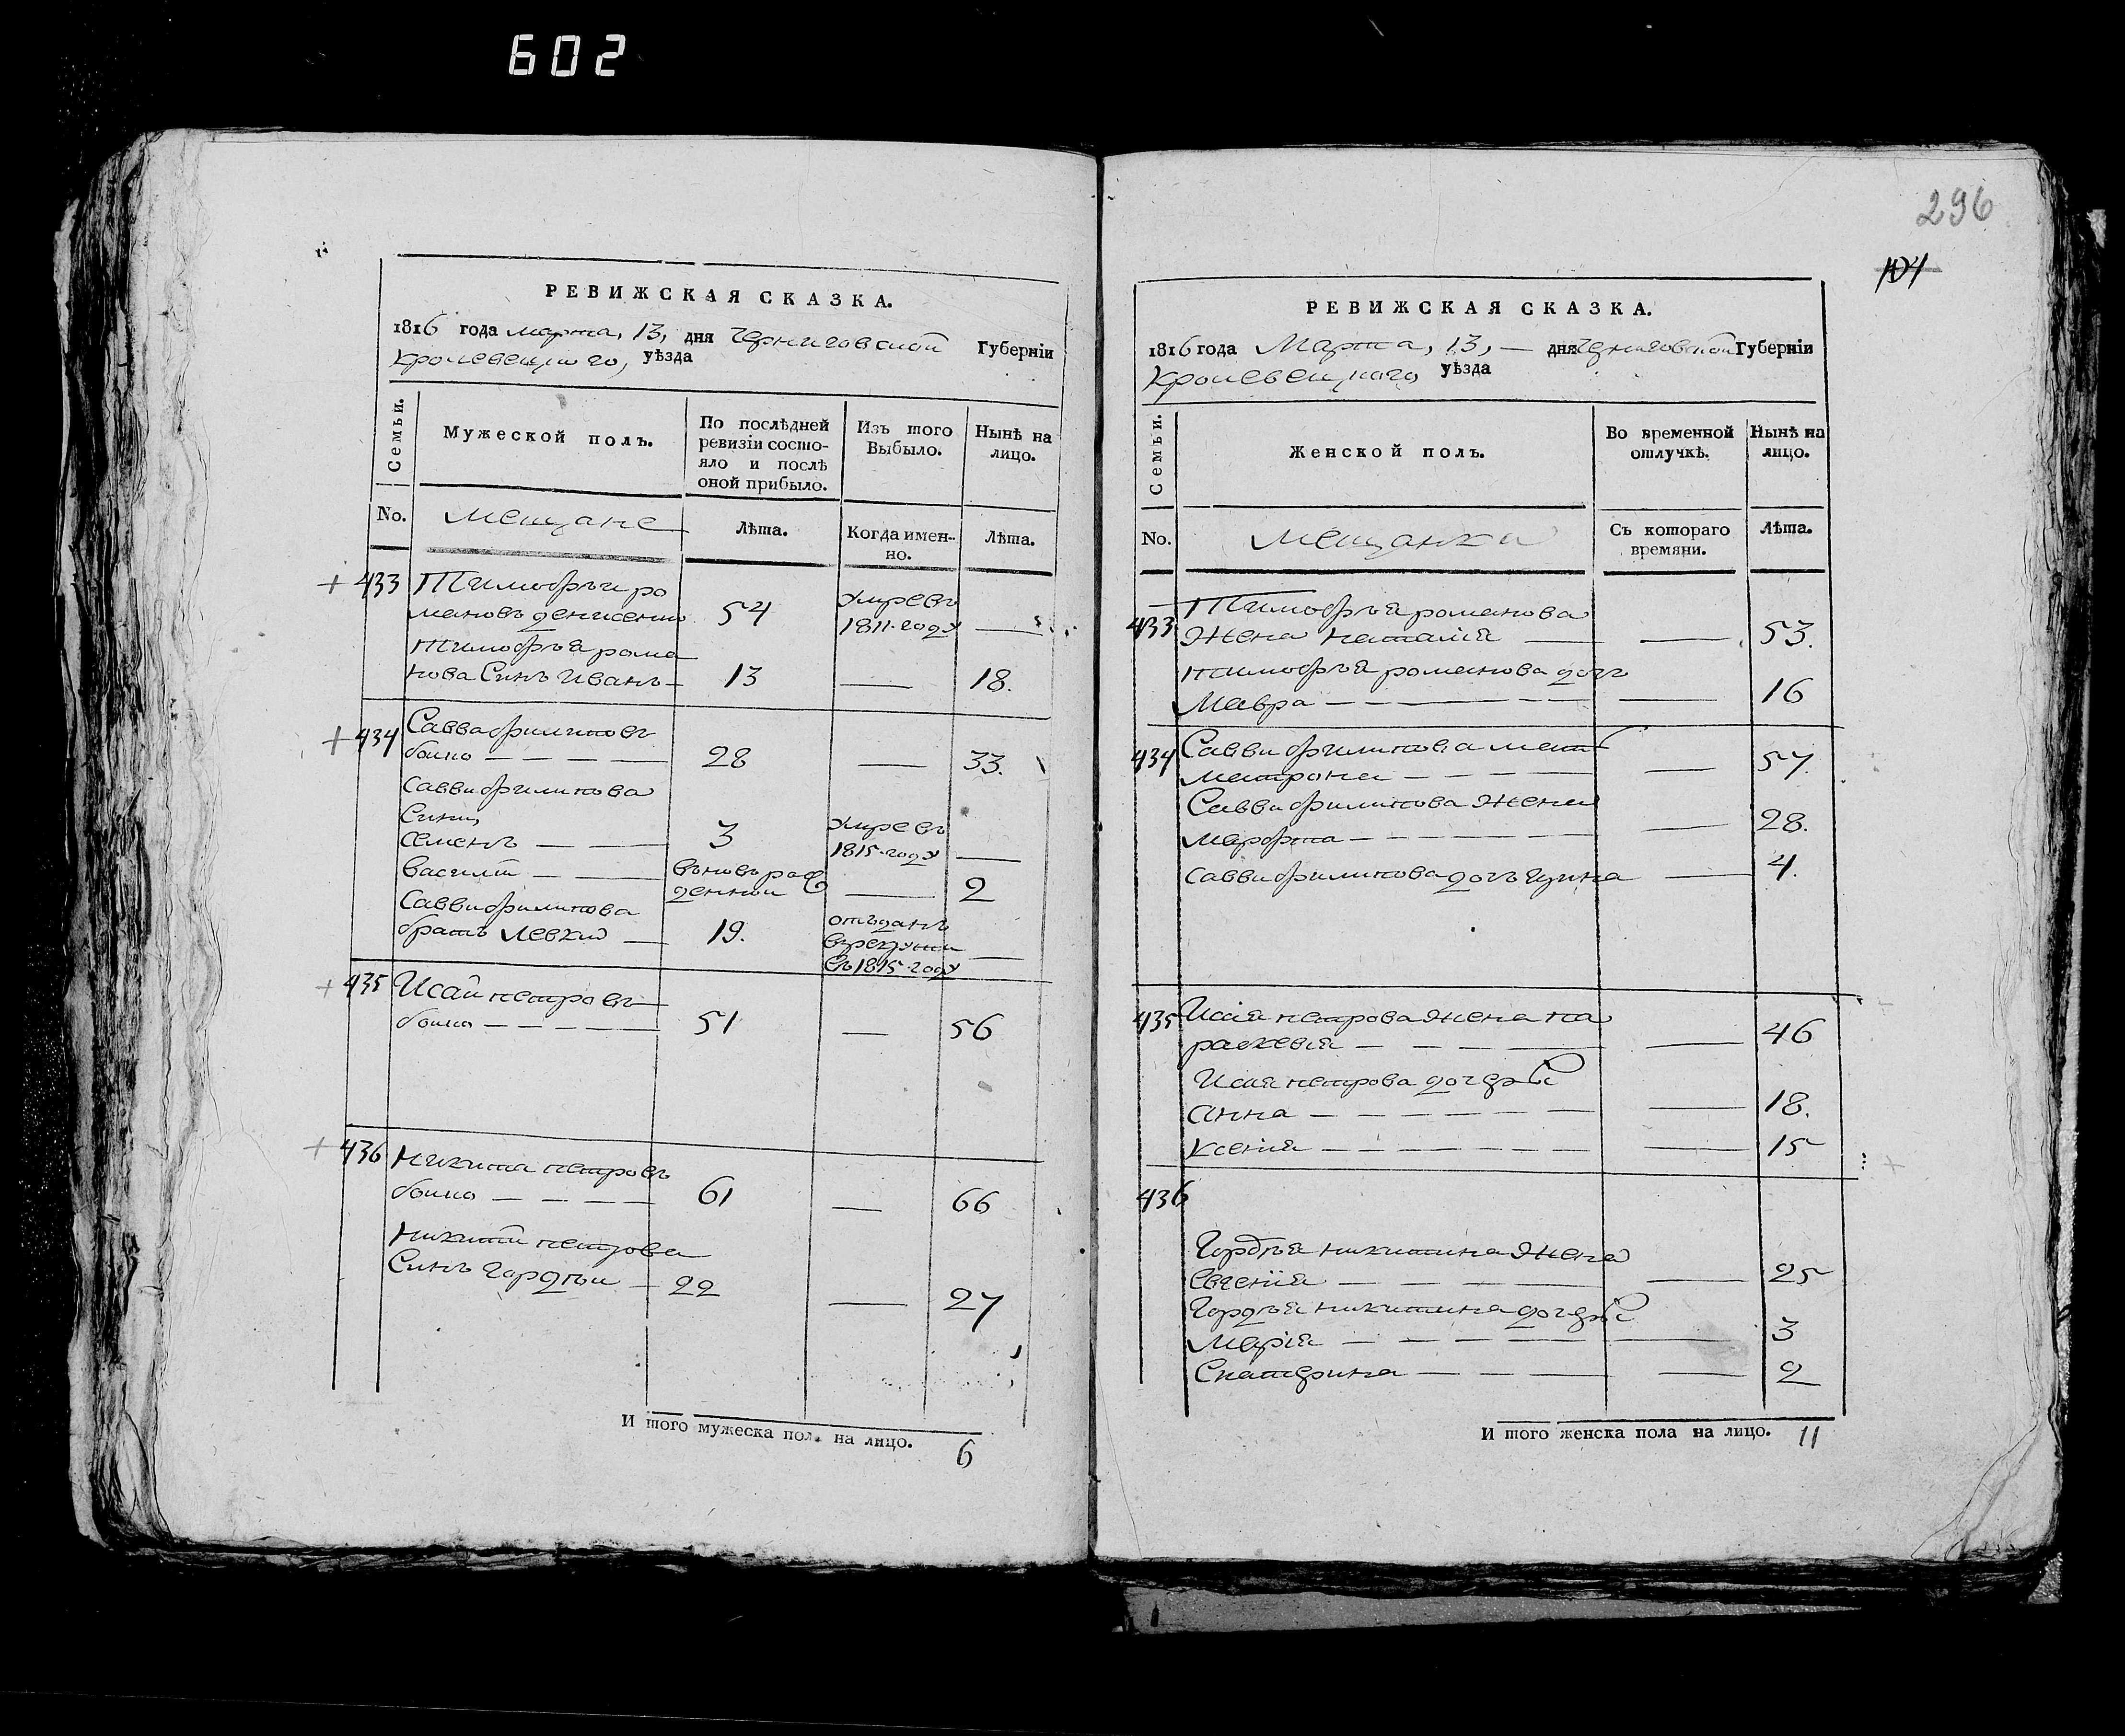 602
РЕВИЖСКАЯ СКАЗКА.
1816 года марта, 13, дня Черниговской Губерніи
Кролевецкого, уѣзда
Семьи.
Мужеской полъ.
По послѣдней ревизіи состояло и послѣ оной прибыло.
Изъ того Выбыло.
Нынѣ на лицо.
No.
мещане
Лѣта.
Когда именно.
Лѣта.
+ 433 Тимофѣй ро
мановъ денисенко 54 умре въ 1811·году —
тимофѣя рома
нова Синъ иванъ 13 — 18.
+ 434 Савва филиповъ
боико 28 — 33.
савви филипова
Сини,
семенъ 3 умре въ 1815·году —
василій вновь рожденний — 2
Савви филипова
братъ левкий 19. отъданъ врекрути въ 1815·году —
+ 435 Исай петровъ
боико 51 — 56
+ 436 Никита петровъ
боико 61 — 66
никити петрова
Синъ гордѣи 22 — 27
И того мужеска пола на лицо. 6
296
104
РЕВИЖСКАЯ СКАЗКА.
1816 года Марта, 13, — дня Черниговской Губерніи
Кролевецкого уѣзда
Семьи.
Женской полъ.
Во временной отлучкѣ.
Нынѣ на лицо.
No.
мещанки
Съ котораго времяни.
Лѣта.
433 Тимофѣя романова
жена наталія — 53.
тимофѣя романова дочь
Мавра — 16
434 Савви филипова мать
матрона — 57.
Савви филипова жена
марфта — 28.
савви филипова дочъ ирина — 4.
435 Исаія петрова жена па
раскевія — 46
Исаія петрова дочерѣ
анна — 18.
ксенія — 15
436
Гордѣя никитина жена
Евгенія — 25
Гордѣя никитина дочерѣ
Марія — 3
Екатерина — 2
И того женска пола на лицо. 11